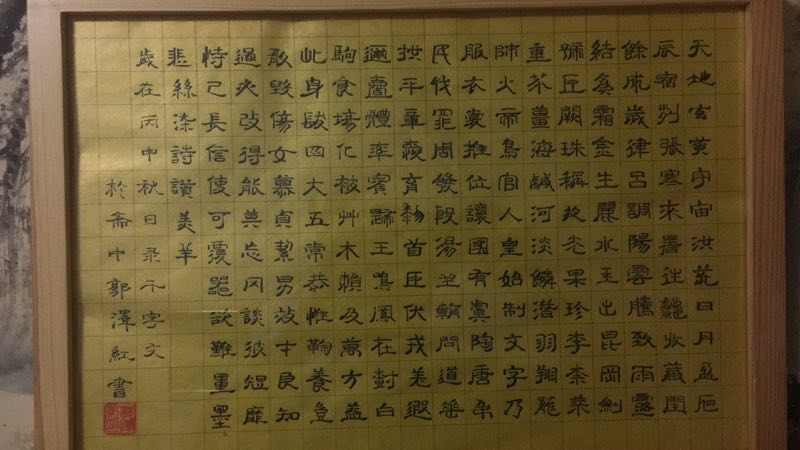 天地玄黃宇宙洪荒日月盈昃
辰宿列張寒來暑往龝收藏閏
餘成歲律呂調陽雲騰致雨露
結為霜金生麗水玉出昆岡劍
號巨闕珠稱夜光果珍李柰菜
重芥薑海鹹河淡鱗潛羽翔龍
師火帝鳥官人皇始制文字乃
服衣裳推位讓國有虞陶唐弔
民伐罪周發殷湯坐朝問道垂
拱平章愛育黎首臣伏戎羌遐
邇壹體率賓歸王鳴鳳在樹白
駒食場化被艸木賴及萬方蓋
此身髮四大五常恭惟鞠養豈
敢毀傷女慕貞絜男效才良知
過必改得能莫忘罔談彼短靡
恃己長信使可覆器欲難量墨
悲絲染詩讚羔羊
歲在丙申秋日录千字文
於齋中郭澤紅書